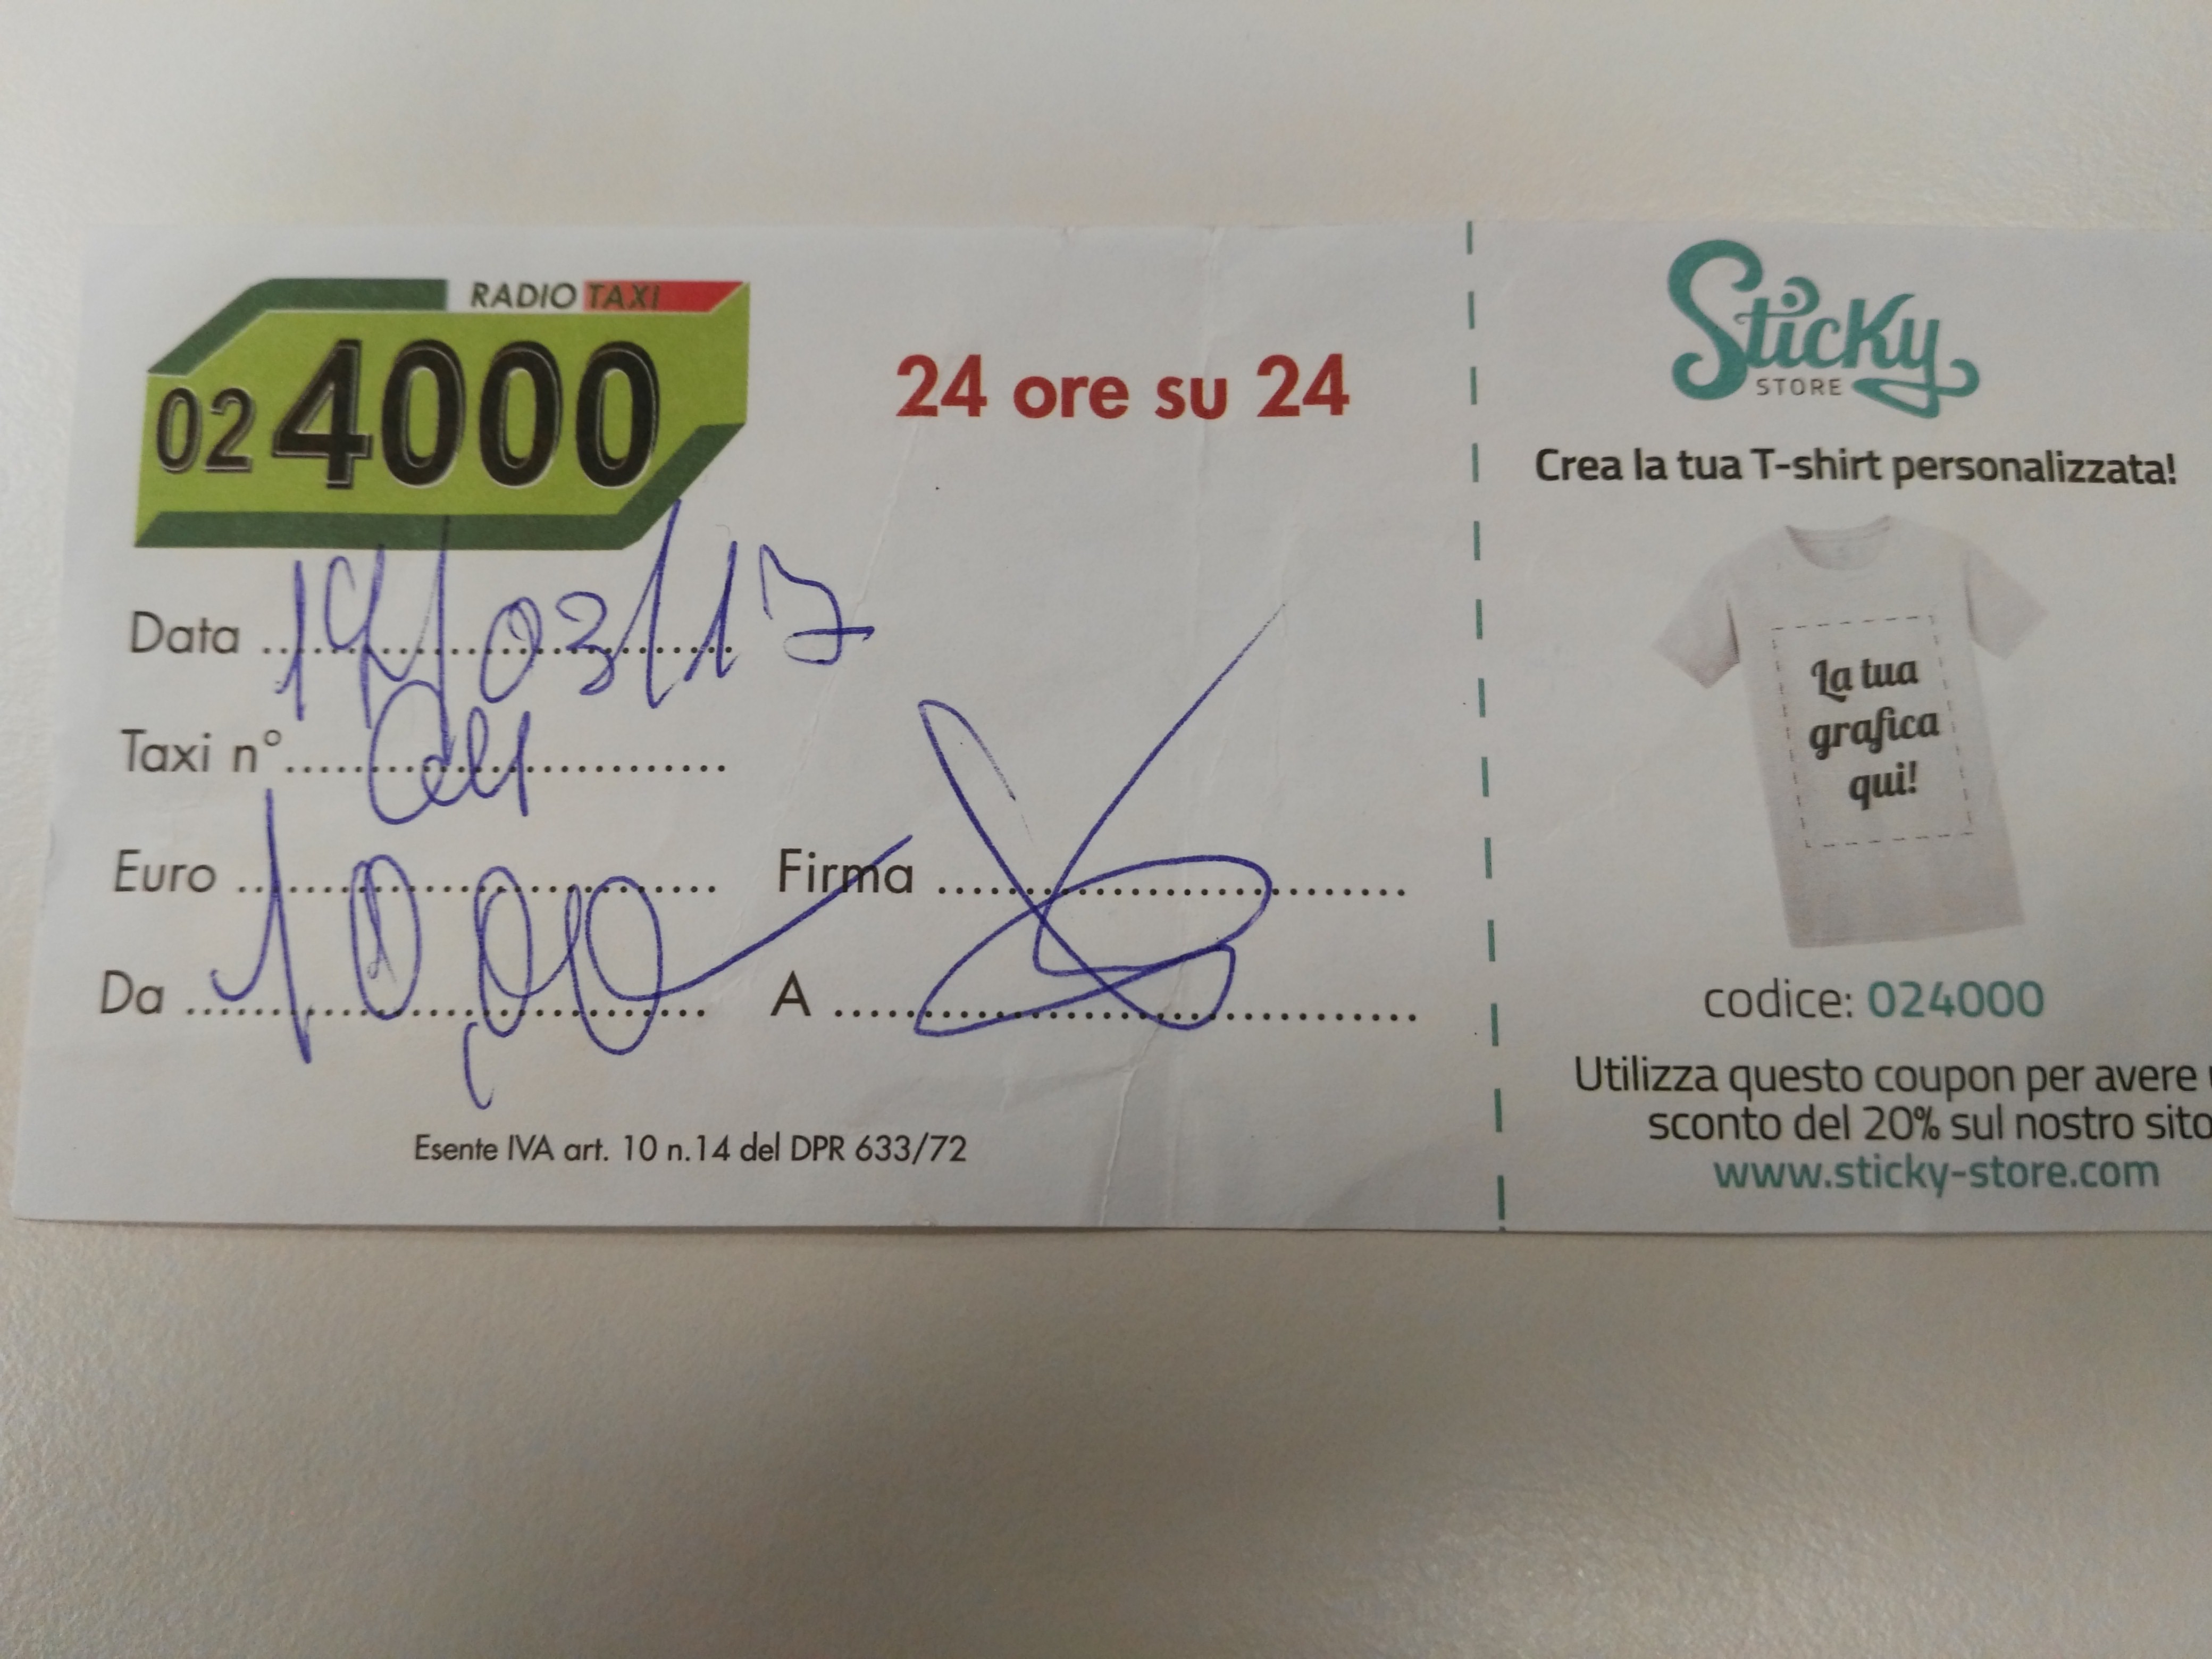 RADIO TAXI
02 4000
24 ore su 24
Data ........ /03/17
Taxi n° ........
Euro ........ 10,00
Firma ........
Da ........
A ........
Esente IVA art. 10 n.14 del DPR 633/72
Sticky
STORE
Crea la tua T-shirt personalizzata!
La tua
grafica
qui!
codice: 024000
Utilizza questo coupon per avere
sconto del 20% sul nostro sito
www.sticky-store.com